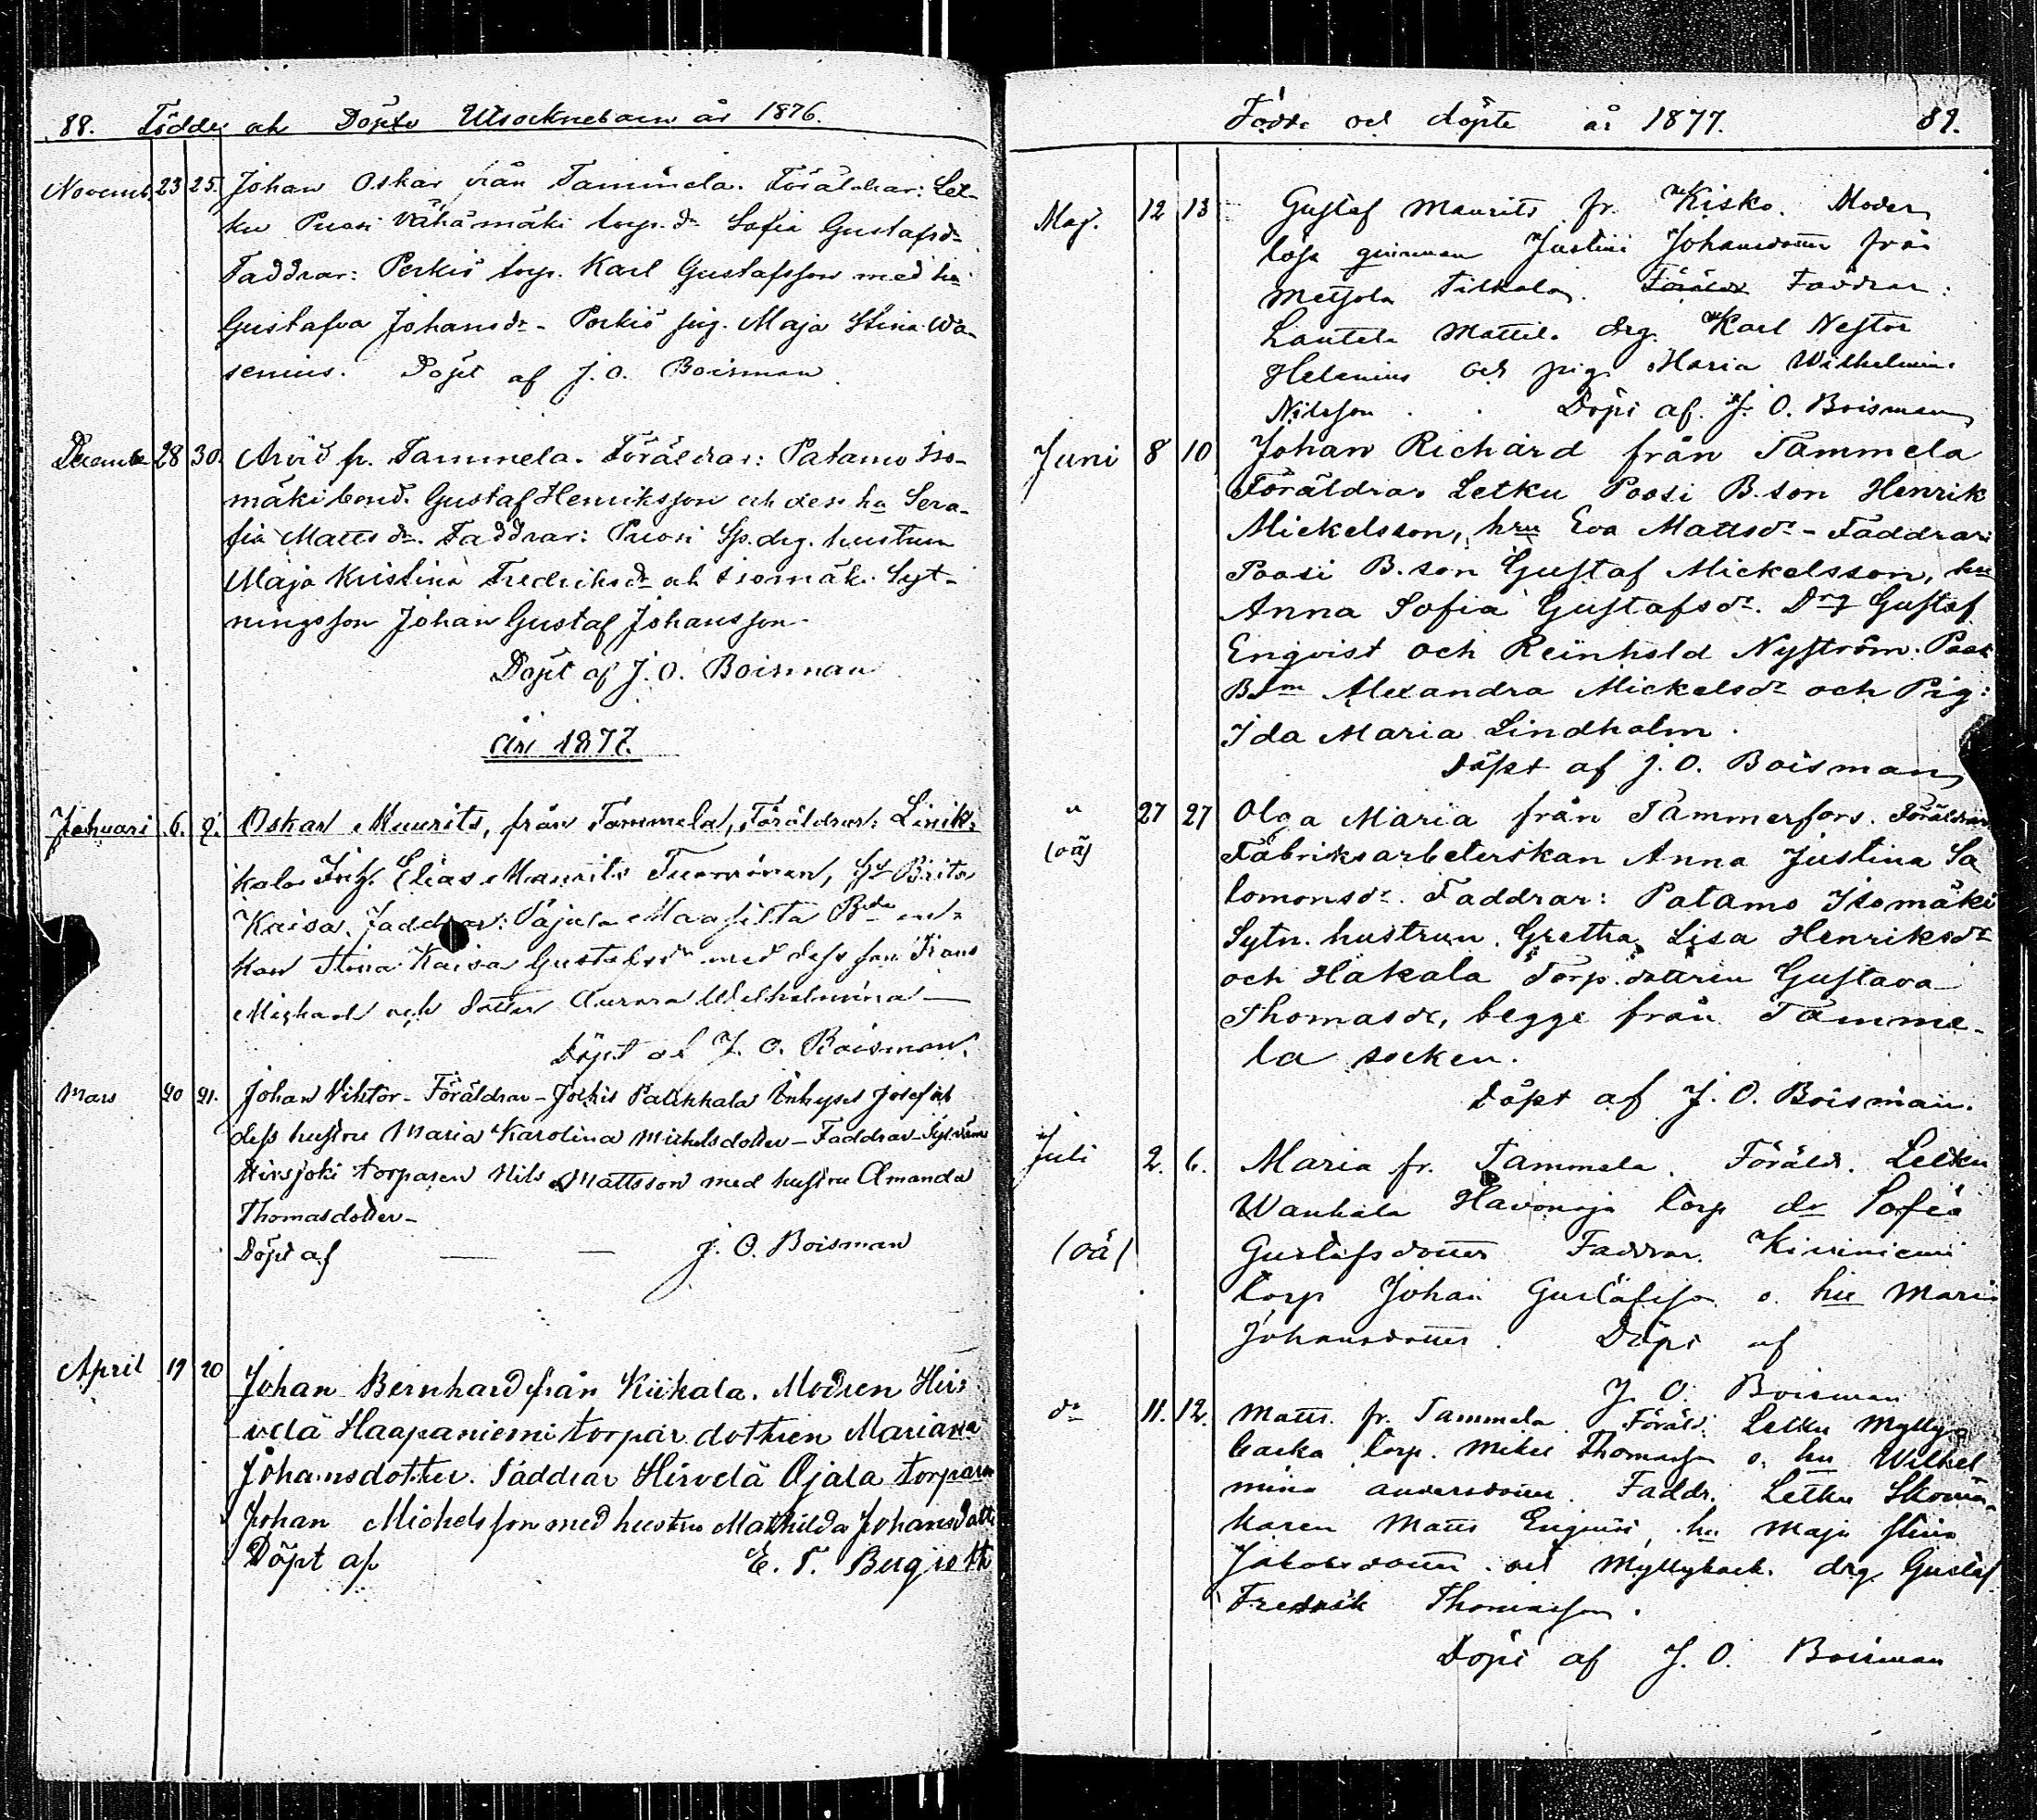 88. Födde och Döpte Utsocknebarn år 1876.
Novemb. 23 25. Johan Oskar från Tammela. Föräldrar: Let-
ku Puosi Vähämäki torp. dr Sofia Gustafsdr
Faddrar: Perkiö torp. Karl Gustafsson med hu
Gustafva Johansdr - Perkiö pig. Maja Stina Wa-
senius. Döpt af J. O. Boisman
Decemb. 28 30. Arvid fr. Tammela. Föräldrar: Patamo Iso-
mäki bond. Gustaf Henriksson och dess hu Sera-
fia Mattsdr. Faddrar: Puosi Sp. drg. hustrun
Maja Kristina Fredriksdr och Isomäki Syt-
ningsson Johan Gustaf Johansson
Döpt af J. O. Boisman
År 1877.
Januari 6. Oskar Maurits, från Tammela, Föräldrar: Linik-
kala Elias Maurits hu Brita
Kaisa. Faddrar:
Stina Kaisa Gustafsdr med dess son Frans
Mickael och dotter Aurora Wilhelmina
Döpt af J. O. Boisman.
Mars 20 21. Johan Viktor - Föräldrar - Jokkis Palikkala Inhyses Josef och
dess hustru Maria Karolina Michelsdotter - Faddrar
Hirsjoki torparen Nils Mattsson med hustru Amanda
Thomasdotter -
Döpt af — — J. O. Boisman
April 19 20 Johan Bernhard från Kiikala. Modren Hir-
velä Haapaniemi torpar dottren Mariana
Johansdotter. Faddrar Hirvelä Ojala torparen
Johan Michelsson med hustru Mathilda Johansdotter
Döpt af E. T. Bergroth
Födde och döpte år 1877. 89.
Maj. 12 13 Gustaf Maurits fr. Kisko. Moder
lösa qvinnan Justina Johansdotter från
Metsola Tilkala. Föräldr Faddrar:
Lautela Mattil. drg. Karl Nestor
Helenius och pig. Maria Wilhelmin.
Nilsson. Döpt af J. O. Boisman
Juni 8 10 Johan Richard från Tammela
Föräldrar Letku Poosi B.son Henrik
Mickelsson, hru Eva Mattsdr - Faddrar:
Poosi B.son Gustaf Mickelsson, hu
Anna Sofia Gustafsdr. Drg Gustaf
Enqvist och Reinhold Nyström. Poosi
Alexandra Mickelsdr och Pig:
Ida Maria Lindholm.
Döpt af J. O. Boisman
" 27 27 Olga Maria från Tammerfors. Föräldrar
(oä) Fabriksarbeterskan Anna Justina Sa
lomonsdr. Faddrar: Patamo Isomäki
Sytn. hustrun Gretha Lisa Henriksdr
och Hakala Torp. dottren Gustava
Thomasdr, begge från Tamme-
la socken.
Döpt af J. O. Boisman.
Juli 2. 6. Maria fr. Tammela. Föräldr. Letku
Wanhala Havonoja torp dr Sofia
(oä) Gustafsdotter Faddrar. Kirriniemi
torp Johan Gustafsson o. hu Maria
Johansdotter. Döpt af
J. O. Boisman
do 11. 12. Matts fr. Tammela. Föräld: Letku Mylly-
backa torp. Mikel Thomasson o. hu Wilhel
mina Andersdotter. Faddr. Letku Skoma-
karen Matts Enqvist, hu Maja Stina
Jakobsdotter och Myllyback. drg. Gustaf
Fredrik Thomasson.
Döpt af J. O. Boisman